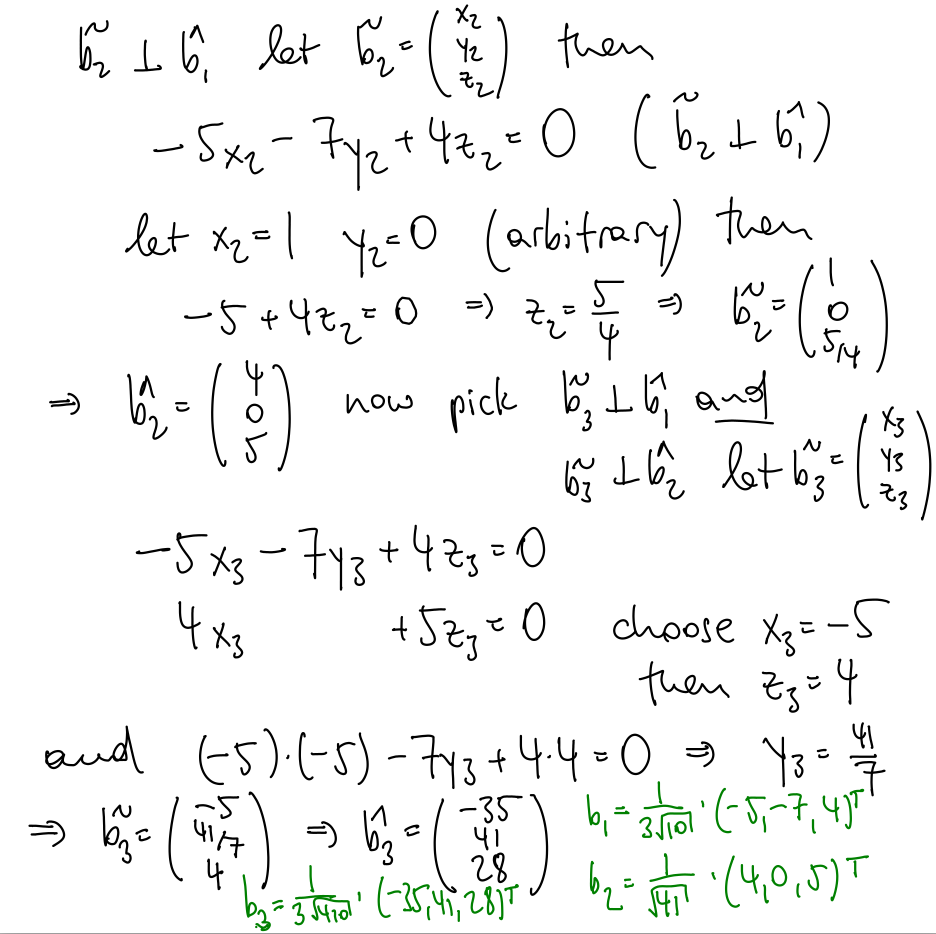 b̃₂ ⊥ b̂₁ let b̃₂ = (x₂ y₂ z₂) then
-5x₂ - 7y₂ + 4z₂ = 0 (b̃₂ ⊥ b̂₁)
let x₂ = 1 y₂ = 0 (arbitrary) then
-5 + 4z₂ = 0 ⇒ z₂ = 5/4 ⇒ b̃₂ = (1 0 5/4)
⇒ b̂₂ = (4 0 5) now pick b̃₃ ⊥ b̂₁ and
b̃₃ ⊥ b̂₂ let b̃₃ = (x₃ y₃ z₃)
-5x₃ - 7y₃ + 4z₃ = 0
4x₃ + 5z₃ = 0 choose x₃ = -5
then z₃ = 4
and (-5)·(-5) - 7y₃ + 4·4 = 0 ⇒ y₃ = 41/7
⇒ b̃₃ = (-5 41/7 4) ⇒ b̂₃ = (-35 41 28)
b₁ = 1/(3√10) · (-5, -7, 4)ᵀ
b₂ = 1/√41 · (4, 0, 5)ᵀ
b₃ = 1/(3√410) · (-35, 41, 28)ᵀ